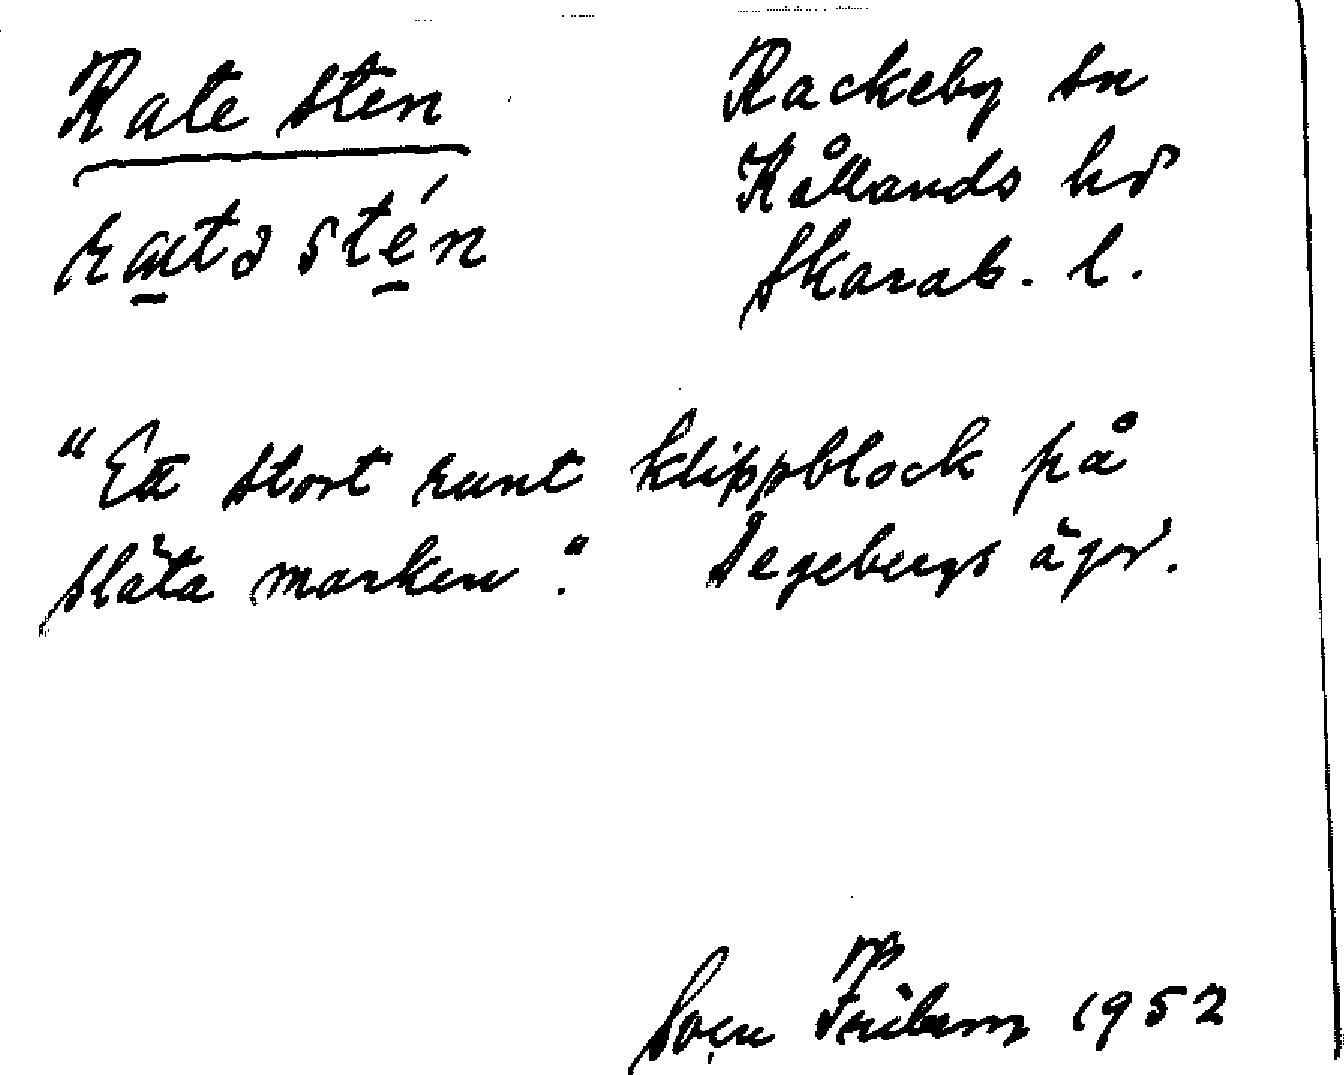 Rate sten
Rackeby sn
Kållands hd
Skarab. l.
"Ett stort runt klippblock på
släta marken". Degebergs ägor.
Sven 1952